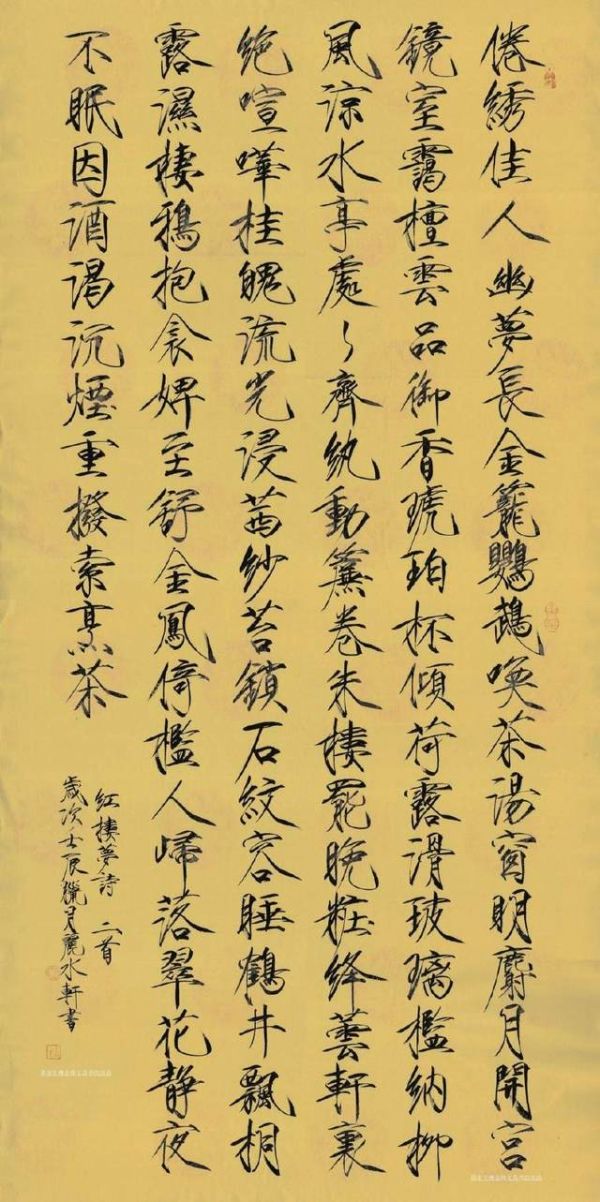 倦綉佳人幽夢長金籠鸚鵡喚茶湯窗明麝月開宮
鏡室靄檀雲品御香琥珀杯傾荷露滑玻璃檻納柳
風涼水亭處〻齊紈動簾卷朱樓罷晚粧絳蕓軒裏
絶喧嘩桂魄流光浸茜紗苔鎖石紋容睡鶴井飄桐
露濕棲鴉抱衾婢至舒金鳳倚檻人歸落翠花静夜
不眠因酒渴沉煙重撥索烹茶
紅樓夢詩 二首
歲次壬辰臘月麗水軒書